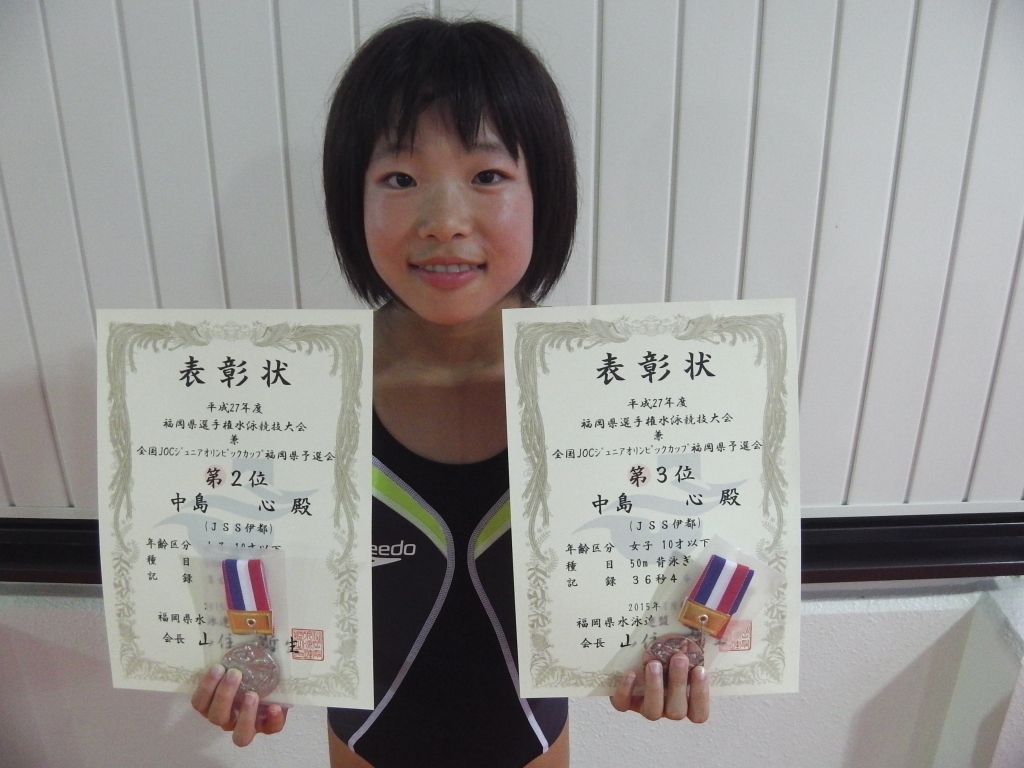 表彰状
平成27年度
福岡県選手権水泳競技大会
兼
全国JOCジュニアオリンピックカップ福岡県予選会
第2位
中島 心 殿
(JSS伊都)
年齢区分 女子 10才以下
種目
記録
福岡県水泳
会長 山住 生
表彰状
平成27年度
福岡県選手権水泳競技大会
兼
全国JOCジュニアオリンピックカップ福岡県予選会
第3位
中島 心 殿
(JSS伊都)
年齢区分 女子 10才以下
種目 50m 背泳ぎ
記録 36秒4
2015年
福岡県水泳連盟
会長 山住
speedo